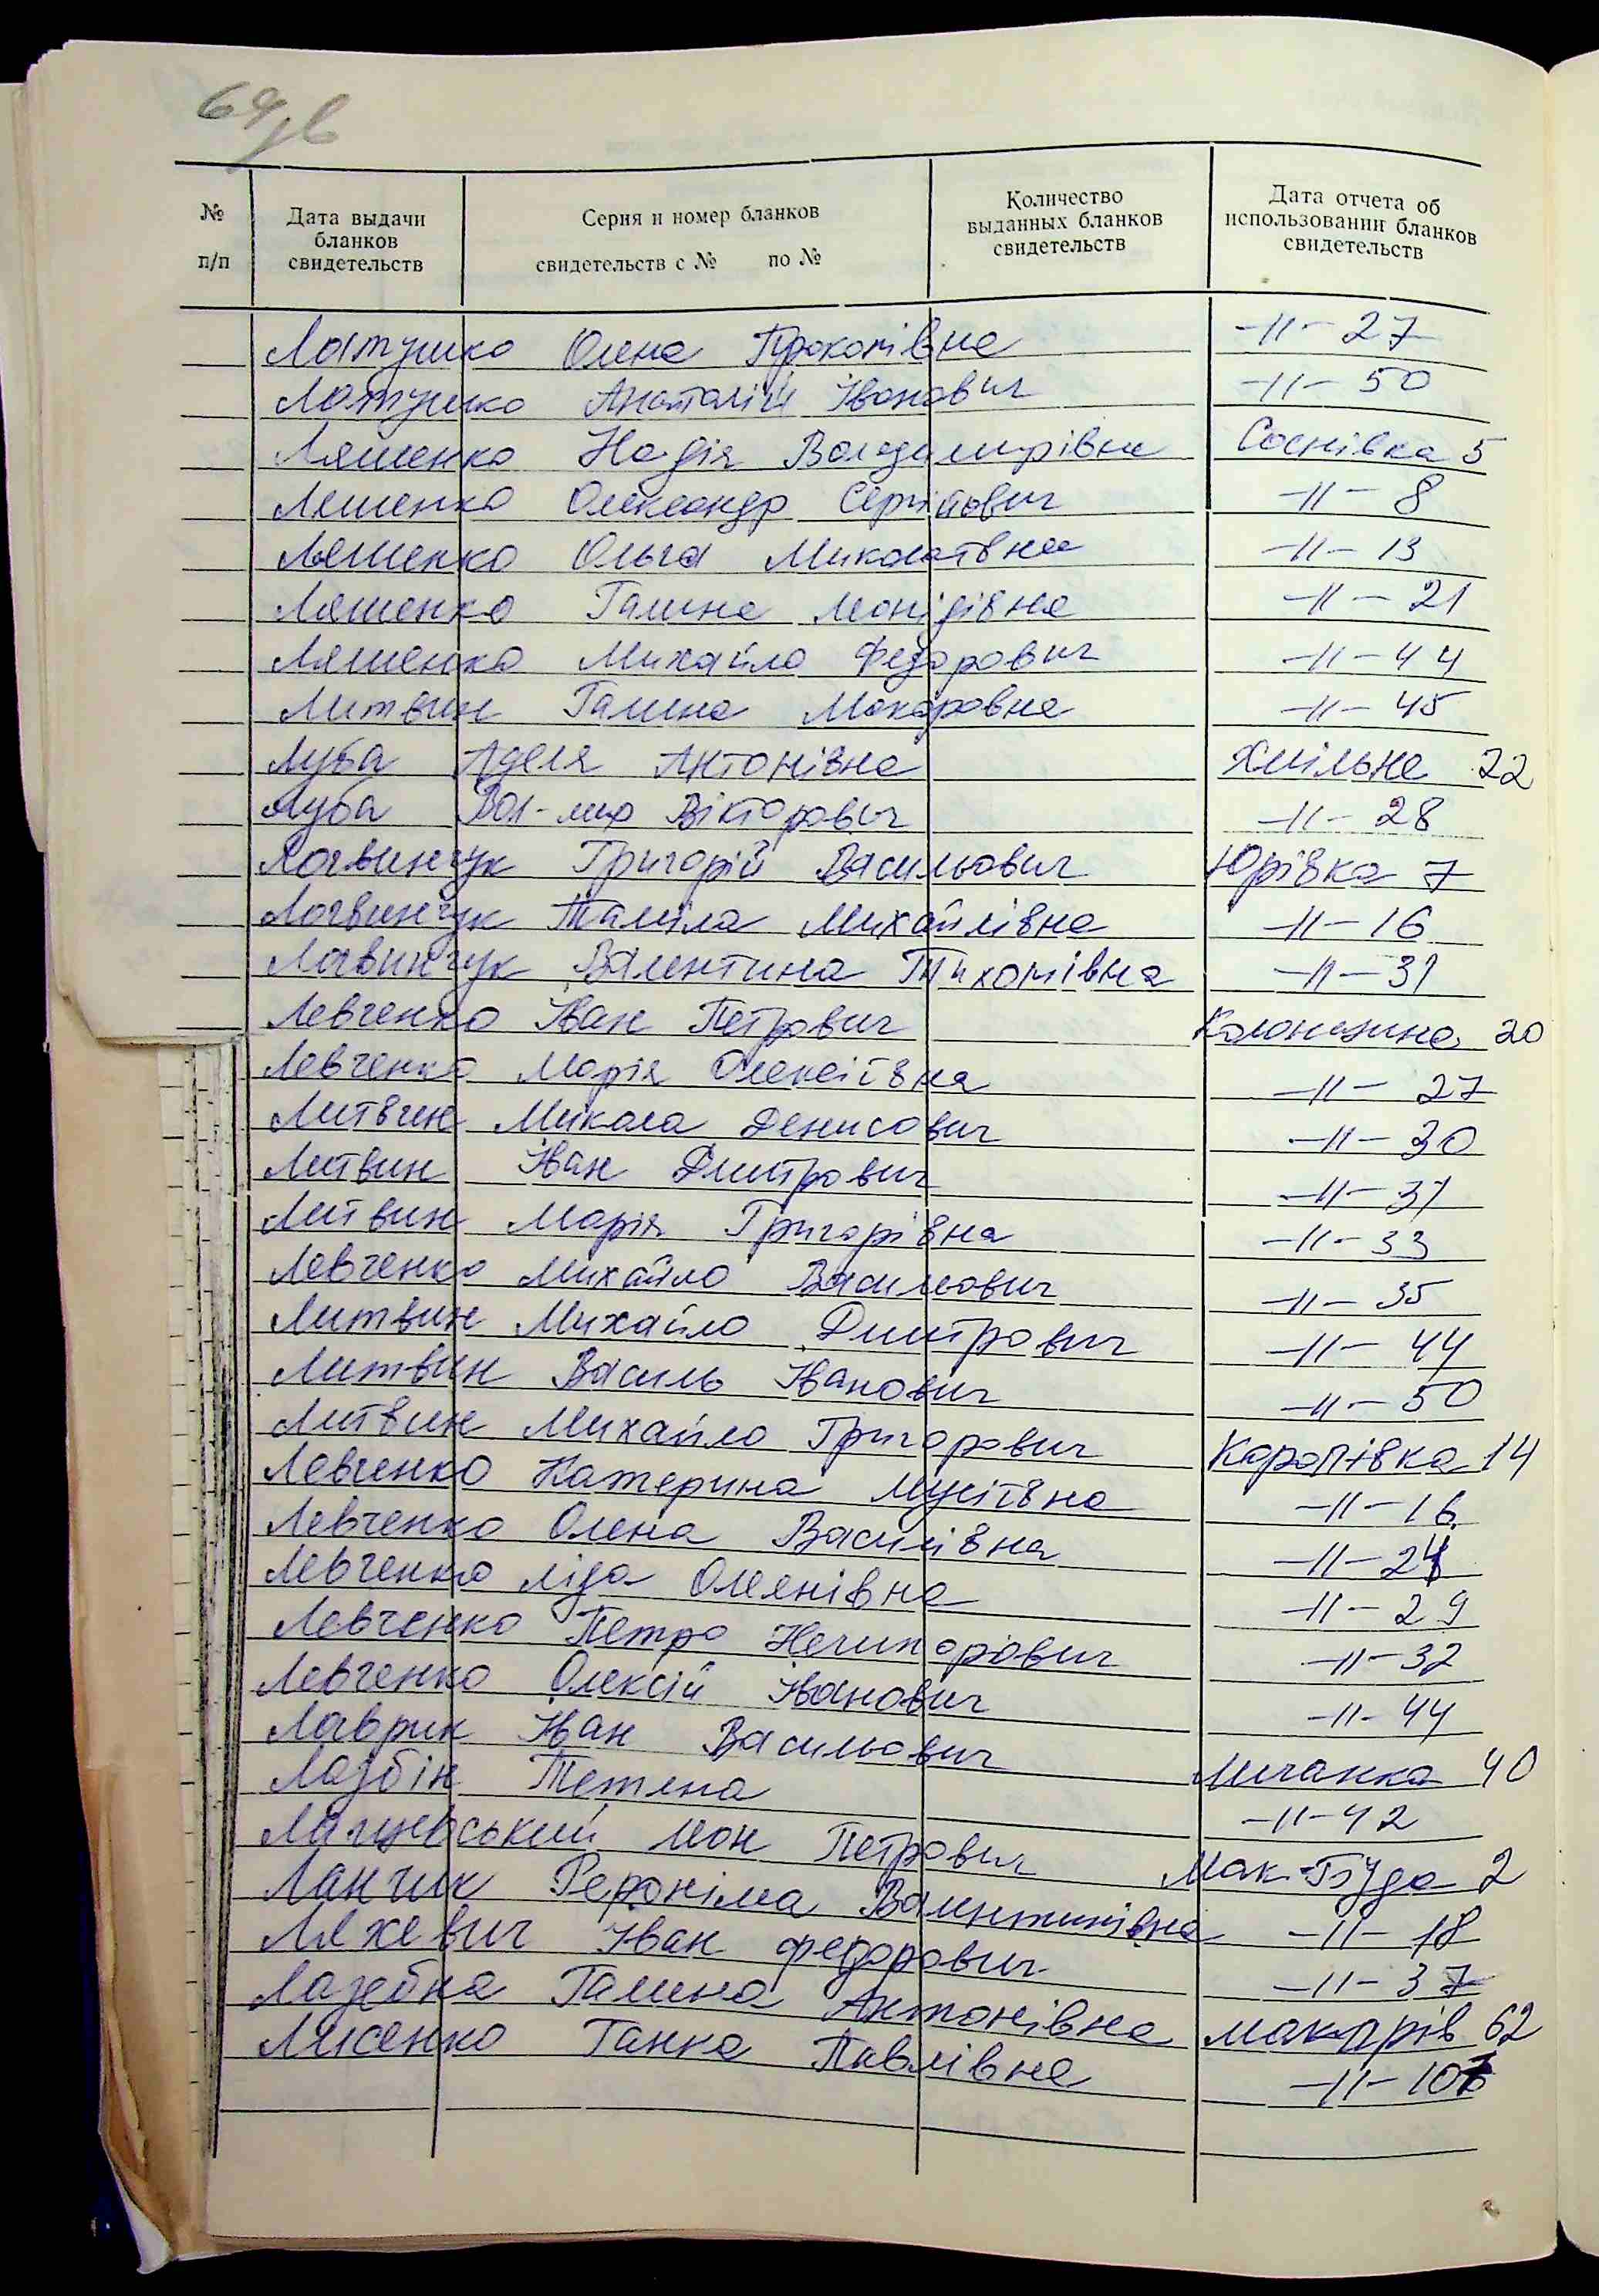 64зв
№ п/п
Дата выдачи бланков свидетельств
Серия и номер бланков свидетельств с № по №
Количество выданных бланков свидетельств
Дата отчета об использовании бланков свидетельств
Латушко Олена Прокопівна -11- 27
Латушко Анатолій Іванович -11- 50
Ляшенко Надія Володимирівна Соснівка 5
Ляшенко Олександр Сергійович -11- 8
Ляшенко Ольга Миколаївна -11- 13
Ляшенко Галина Леонідівна -11- 21
Ляшенко Михайло Федорович -11- 44
Литвин Галина Макаровна -11- 45
Луба Аделя Антонівна Хмільне 22
Луба Вол-мир Вікторович -11- 28
Логвинчук Григорій Васильович Юрівка 7
Логвинчук Таміла Михайлівна -11- 16
Логвинчук Валентина Тихонівна -11- 31
Левченко Іван Петрович Колонщина 20
Левченко Марія Олексіївна -11- 27
Литвин Микола Денисович -11- 30
Литвин Іван Дмитрович -11- 31
Литвин Марія Григорівна -11- 33
Левченко Михайло Васильович -11- 35
Литвин Михайло Дмитрович -11- 44
Литвин Василь Іванович -11- 50
Литвин Михайло Григорович Королівка 14
Левченко Катерина Мусіївна -11- 16
Левченко Олена Василівна -11- 24
Левченко Ліда Омелянівна -11- 29
Левченко Петро Нечипорович -11- 32
Левченко Олексій Іванович -11- 44
Лаврик Іван Васильович Личанка 40
Лазбін Тетяна -11- 42
Леон Петрович Мак-Буда 2
Ланчик Героніма Валентинівна -11- 18
Ляхевич Іван Федорович -11- 37
Лазебна Галина Антонівна Макарів 62
Лисенко Ганна Павлівна -11-